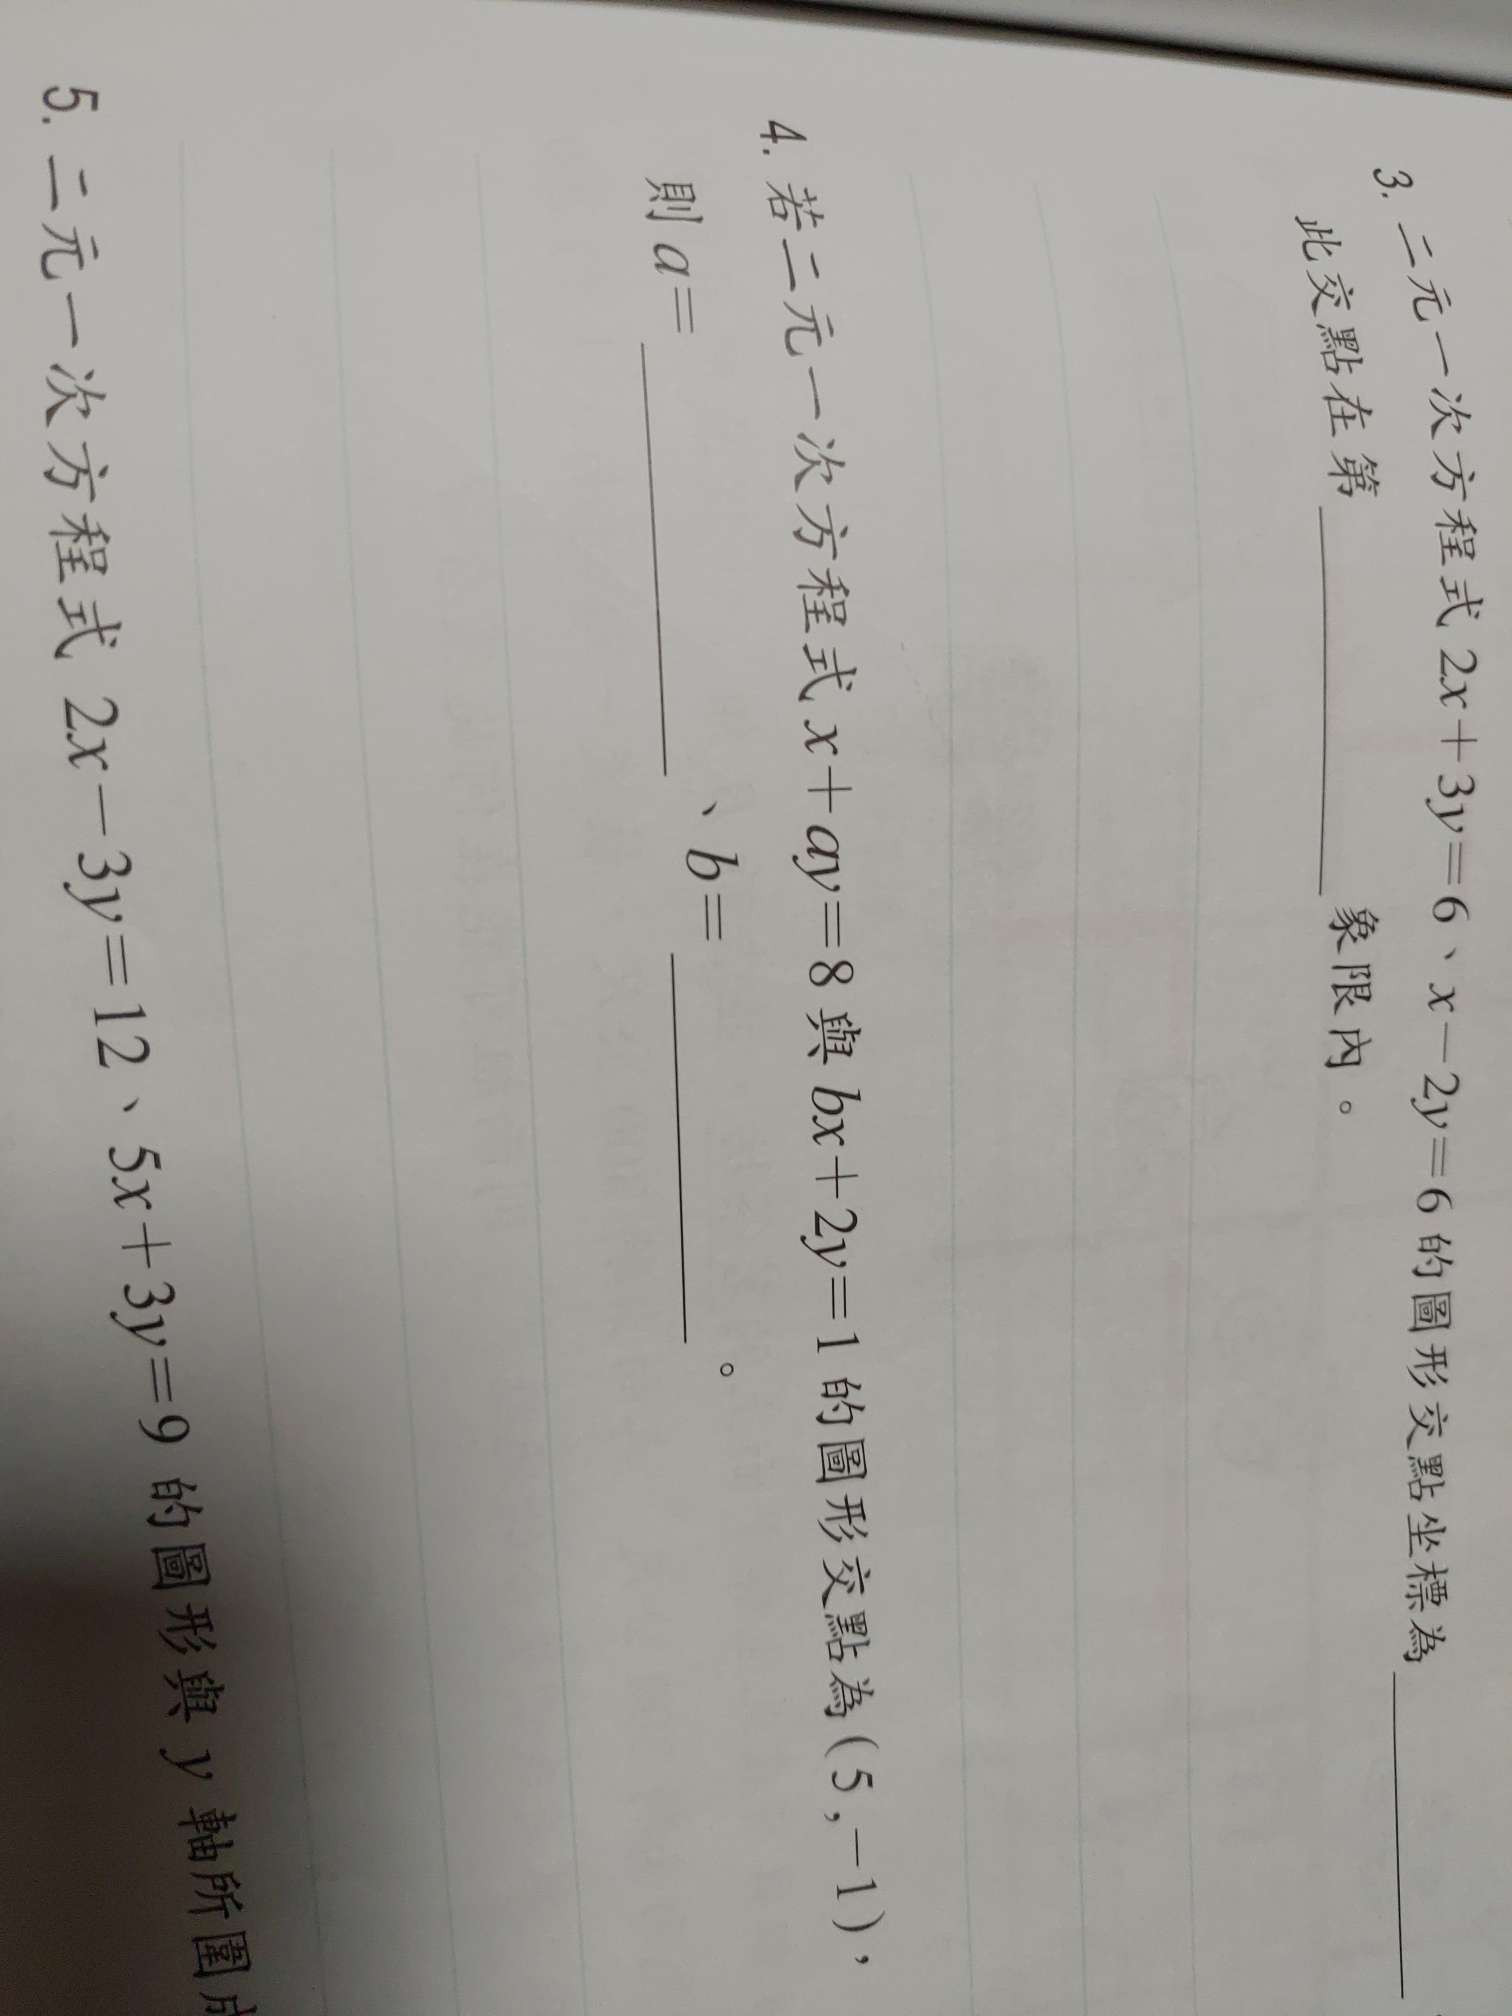 3. 二元一次方程式 2x+3y=6、x-2y=6 的圖形交點坐標為
此交點在第＿＿＿＿＿象限內。
4. 若二元一次方程式 x+ay=8 與 bx+2y=1 的圖形交點為(5,-1)，
則 a=＿＿＿＿＿、b=＿＿＿＿＿。
5. 二元一次方程式 2x-3y=12、5x+3y=9 的圖形與 y 軸所圍